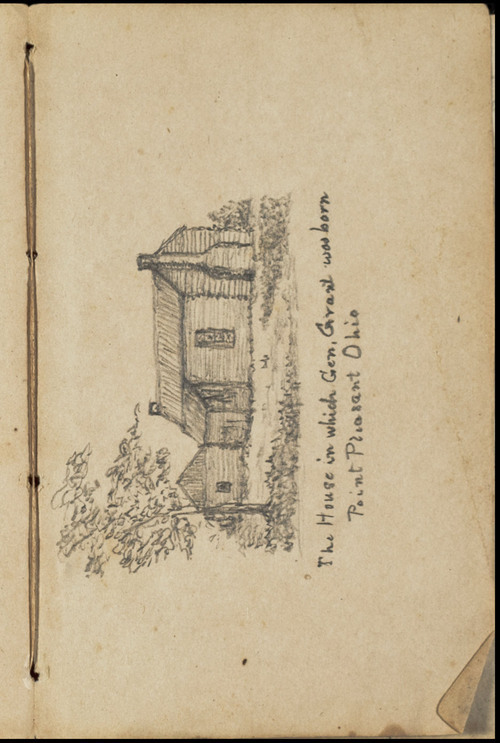 The House in which Gen, Grant was born
Point Pleasant Ohio